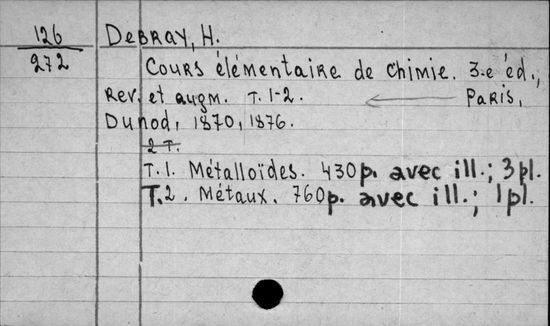 126
272
Debray, H.
Cours élémentaire de Chimie. 3-e éd.,
Rev. et augm. T. 1-2. Paris,
Dunod, 1870, 1876.
2 T.
T. 1. Métalloïdes. 430p. avec ill.; 3 pl.
T. 2. Métaux. 760p. avec ill.; 1 pl.